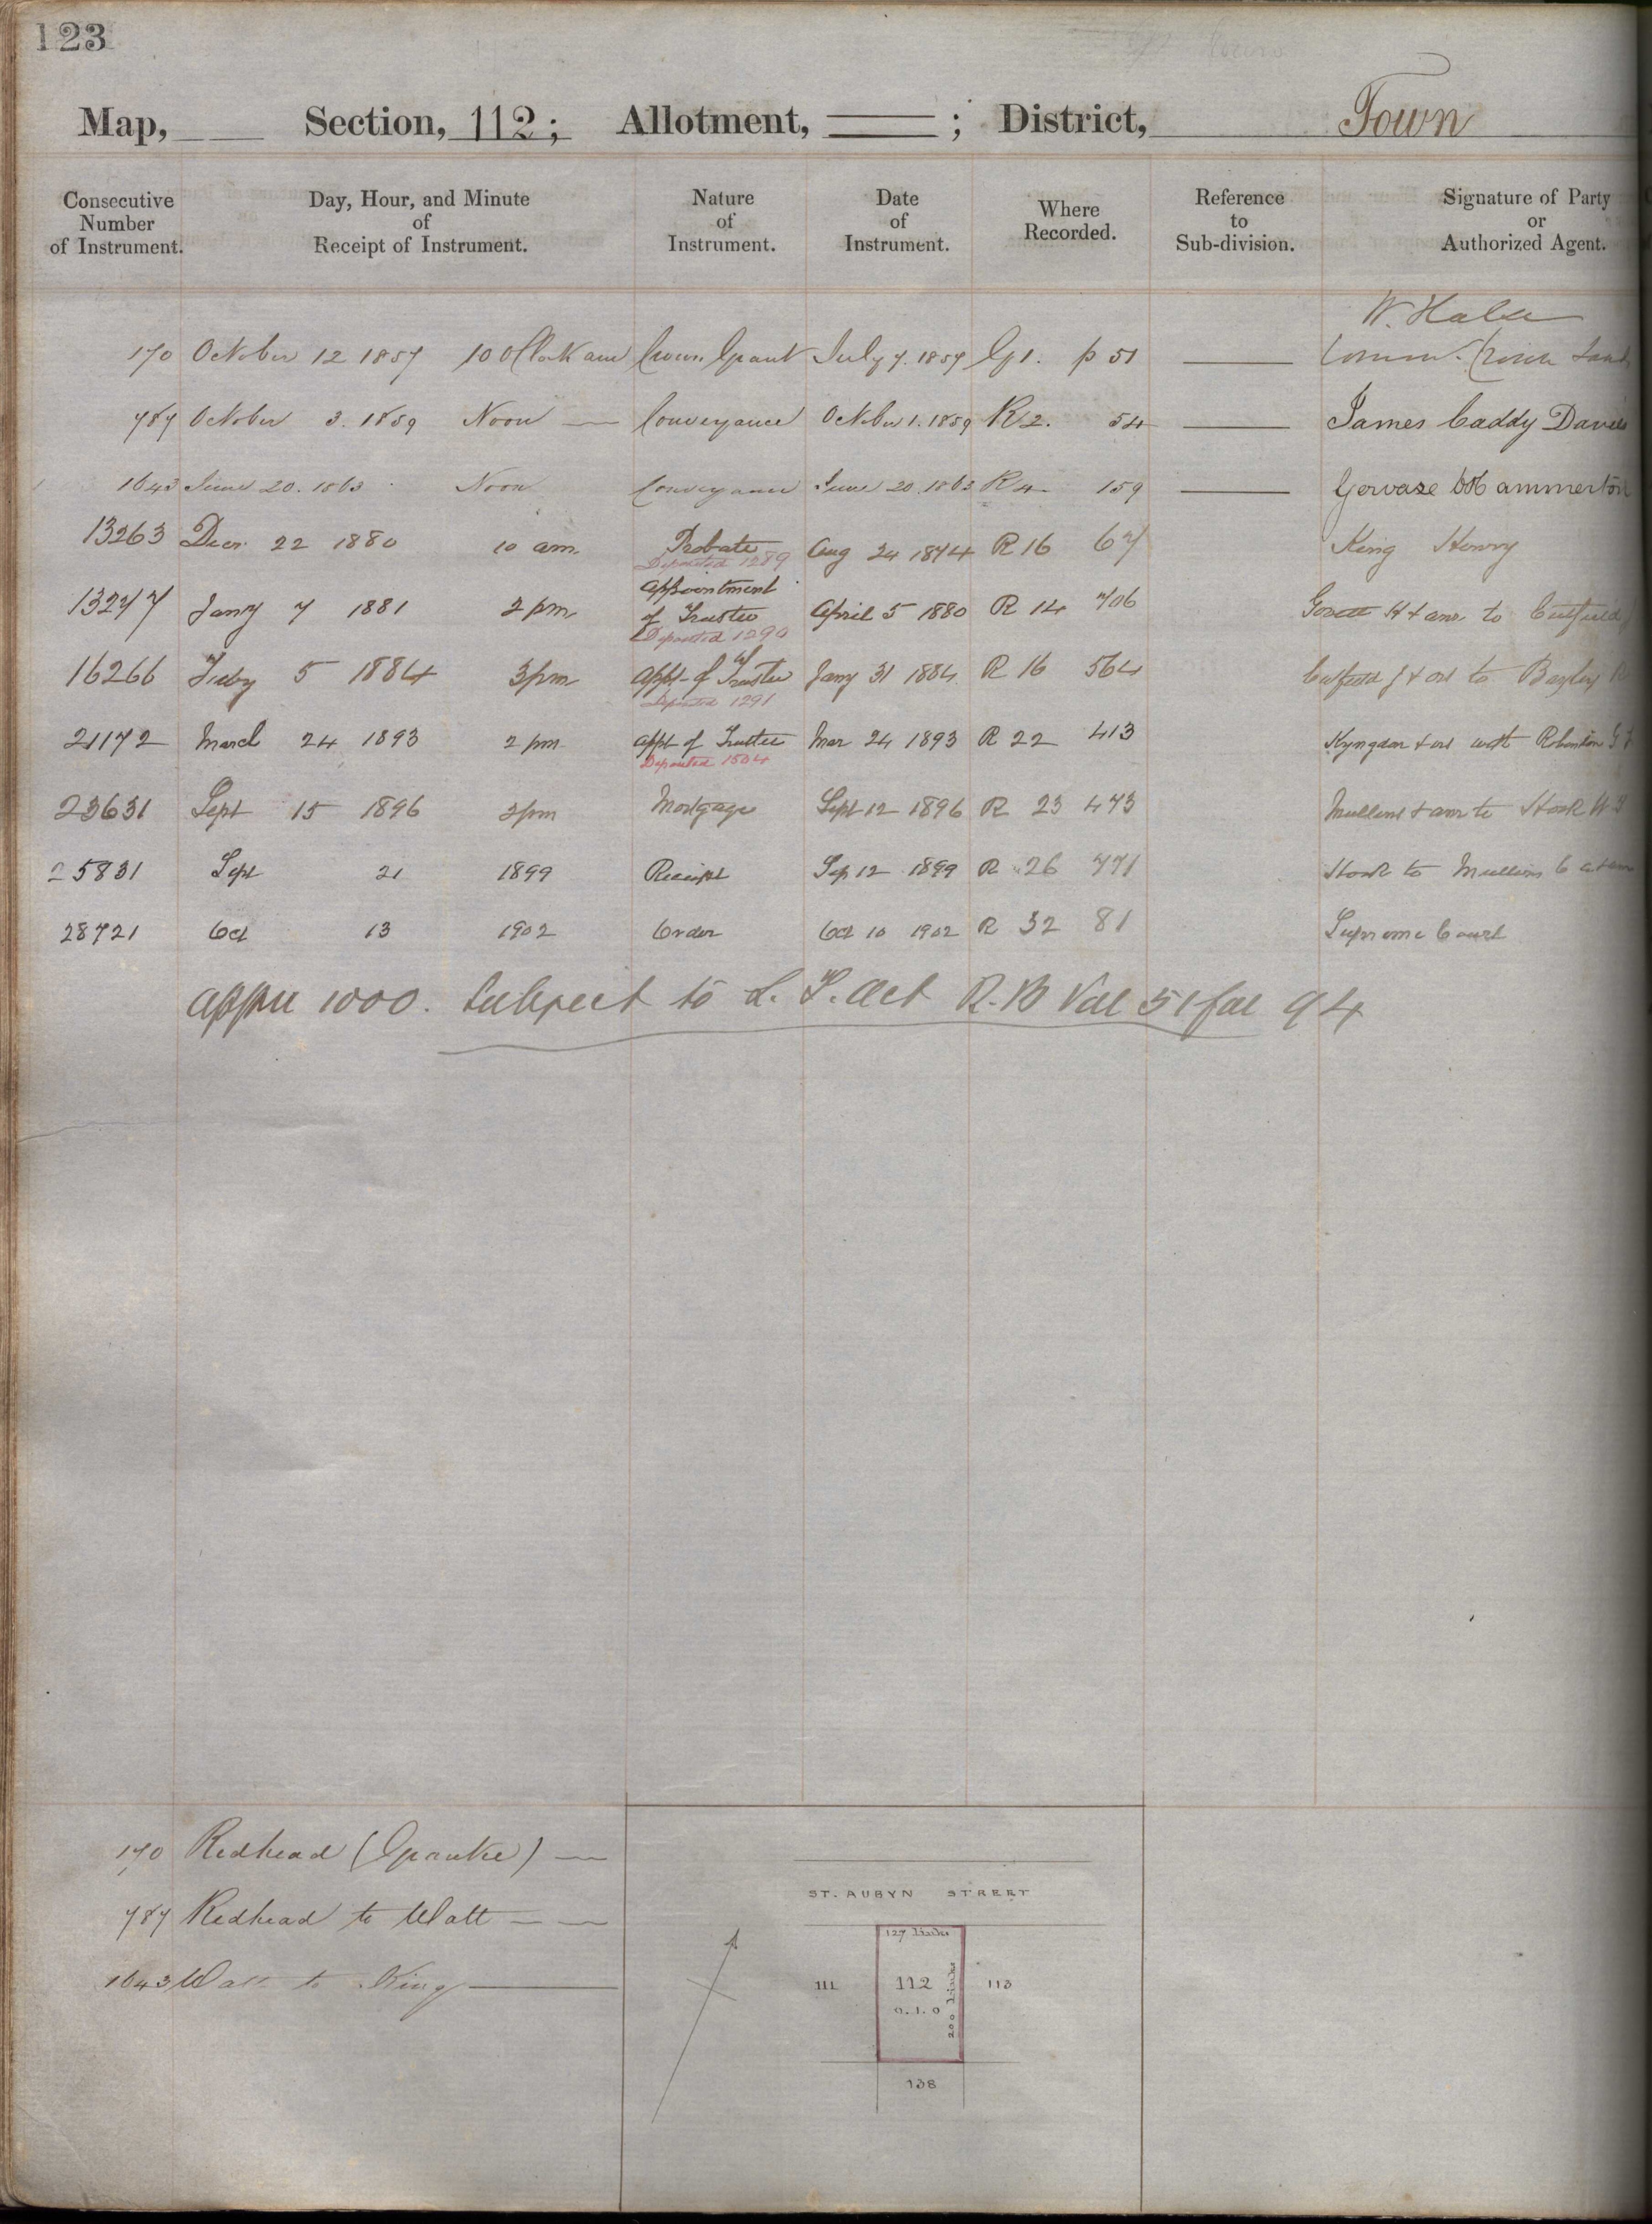 123
Map, Section, 112; Allotment, ; District, Town
Consecutive Number of Instrument.
Day, Hour, and Minute of Receipt of Instrument.
Nature of Instrument.
Date of Instrument.
Where Recorded.
Reference to Sub-division.
Signature of Party or Authorized Agent.
W. Halse
170 October 12 1857 10 OClock am Crown Grant July 7. 1857 G 1. p 51 Crown
787 October 3. 1859 Noon Conveyance October 1. 1859 R 2. 54 James Caddy Davies
1643 June 20. 1863 Noon Conveyance June 20. 1863 R 4 159 Gervase D Hammerton
13263 Decr 22 1880 10 am Probate Aug 24 1874 R 16 67 King Henry
Deposited 1289
Appointment
13277 Jany 7 1881 2 pm of Trustee April 5 1880 R 14 706 Govett H & anr. to Caitfield
Deposited 1290
16266 Feby 5 1884 3 pm Appt of Trustee Jany 31 1884 R 16 564 & ors to Bayley
Deposited 1291
21172 March 24 1893 2 pm Appt of Trustee Mar 24 1893 R 22 413 Kyngdon & ors with Robinson
Deposited 1504
23631 Sept 15 1896 2 pm Mortgage Sept 12 1896 R 23 473 Mullens & anr to Hook W
25831 Sept 21 1899 Receipt Sep 12 1899 R 26 771 Hook to Mullens C
28721 Oct 13 1902 Order Oct 10 1902 R 32 81 Supreme Court
Appn 1000. Subject to L. T. Act R. B Vol 51 fol 94
170 Redhead (Grantee)
787 Redhead to Watt
1643 Watt to King
ST. AUBYN STREET
127 links
111 112 113
0. 1. 0
200 links
138